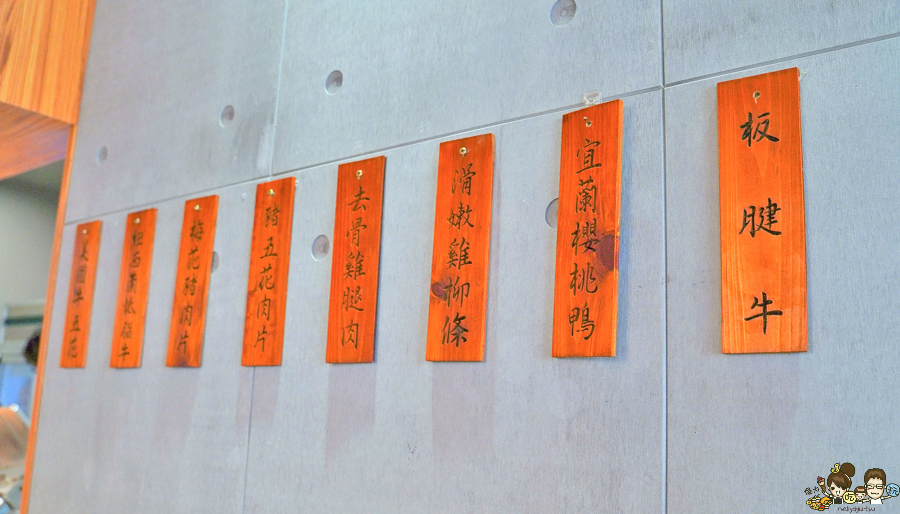 板腱牛
宜蘭櫻桃鴨
滑嫩雞柳條
去骨雞腿肉
豬五花肉片
梅花豬肉片
紐西蘭板腱牛
美國牛五花